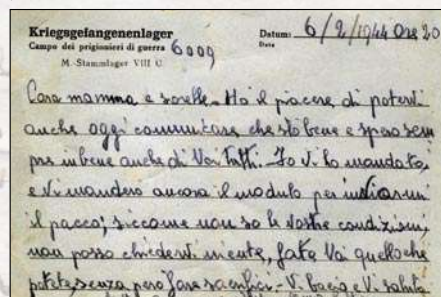 Kriegsgefangenenlager
Campo dei prigionieri di guerra 6009
M. Stammlager VIII C
Datum: 6/2/1944 Ore 20
Data
Cara mamma e sorelle - Ho il piacere di potervi
anche oggi communicare che sto bene e spero sem
pre in bene anche di Voi tutti. - Io vi ho mandato,
e vi mandero ancora il modulo per inviarmi
il pacco; siccome non so le vostre condizioni,
non posso chiedervi niente, fate Voi quelloche
potete, senza pero fare sacrifici - Vi bacia e Vi saluta